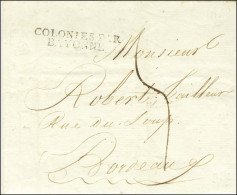 COLONIES PAR
BAYONNE
Monsieur
Robert, Tailleur
Rue du Loup
Bordeaux